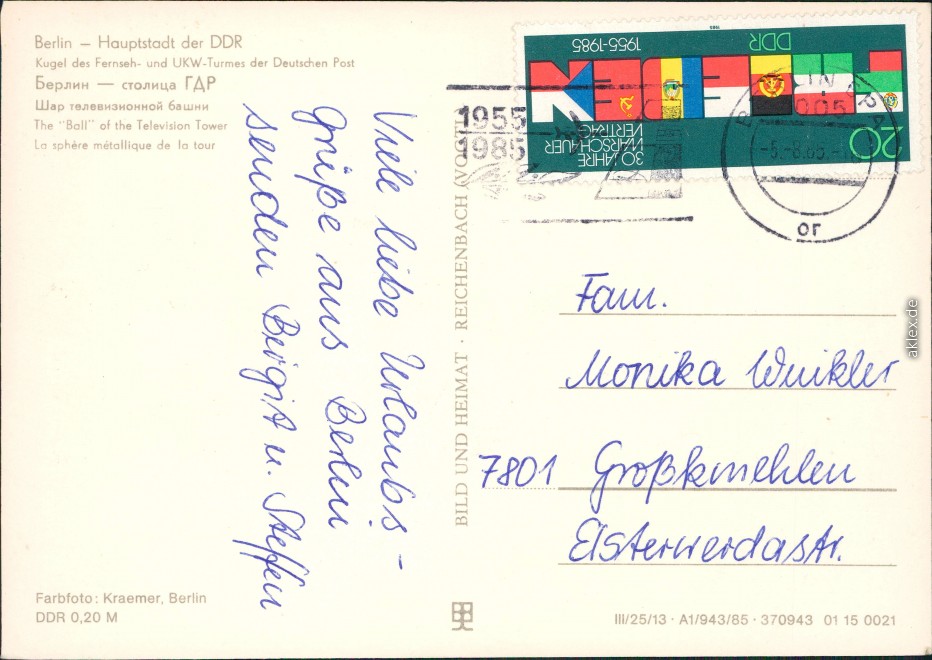 Berlin – Hauptstadt der DDR
Kugel des Fernseh- und UKW-Turmes der Deutschen Post
Берлин — столица ГДР
Шар телевизионной башни
The "Ball" of the Television Tower
La sphère métallique de la tour
Viele liebe Urlaubs-
grüße aus Berlin
senden Birgit u. Steffen
Farbfoto: Kraemer, Berlin
DDR 0,20 M
BILD UND HEIMAT · REICHENBACH (VOGTL
1955
1985
30 JAHRE
WARSCHAUER
VERTRAG
DDR
1955-1985
20
Fam.
Monika Winkler
7801 Großkmehlen
Elsterwerdastr.
III/25/13 · A1/943/85 · 370943 01 15 0021
aklex.de